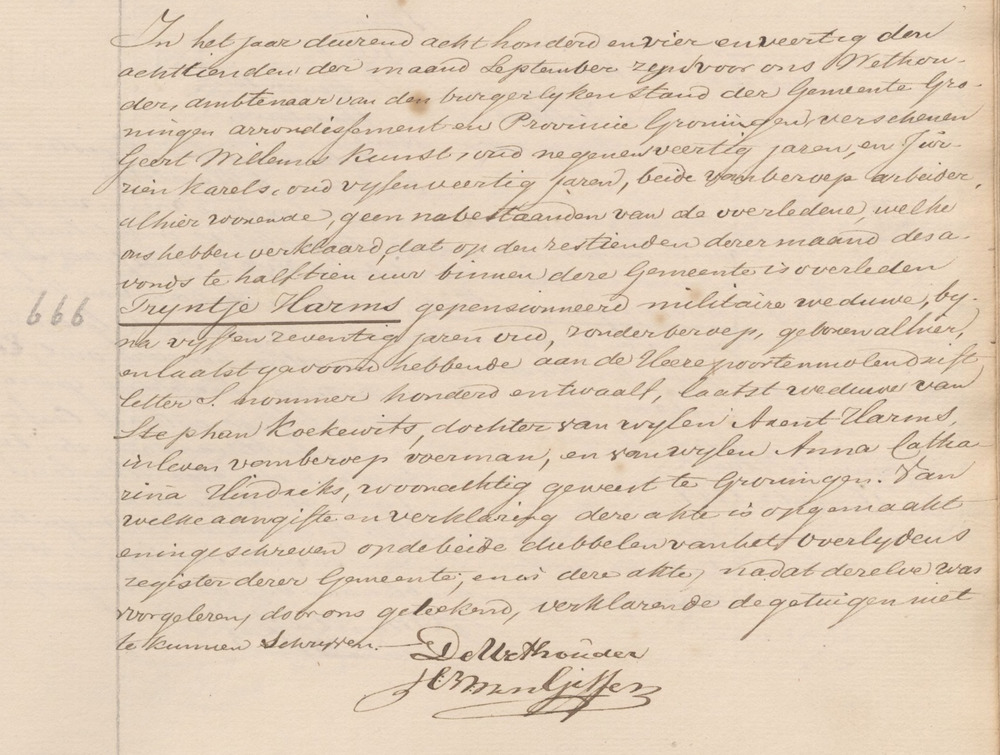 In het jaar duizend acht honderd en vier en veertig den
achttienden der maand September zyn voor ons Wethou-
der, ambtenaar van den burgerlyken stand der Gemeente Gro-
ningen arrondissement en Provincie Groningen, verschenen
Geert Willems Kunst, oud negen en veertig jaren, en Jur-
rien Karels, oud vyf en veertig jaren, beide van beroep arbeider,
alhier wonende, geen nabestaanden van de overledene, welke
ons hebben verklaard, dat op den zestienden dezer maand des a-
vonds te half tien uur binnen deze Gemeente is overleden
666 Tryntje Harms gepensionneerd militaire weduwe, by-
na vyf en zeventig jaren oud, zonder beroep, geboren alhier,
en laatst gewoond hebbende aan de Heerepoortenmolendrift
letter S. nommer honderd en twaalf, laatst weduwe van
Stephan Koekewits, dochter van wylen Arent Harms,
in leven van beroep voerman, en van wylen Anna Catha-
rina Hindriks, woonachtig geweest te Groningen. Van
welke aangifte en verklaring deze akte is opgemaakt
en ingeschreven op de beide dubbelen van het overlydens
register dezer Gemeente, en is deze akte, nadat dezelve was
voorgelezen, door ons geteekend, verklarende de getuigen niet
te kunnen schryven.
De Wethouder